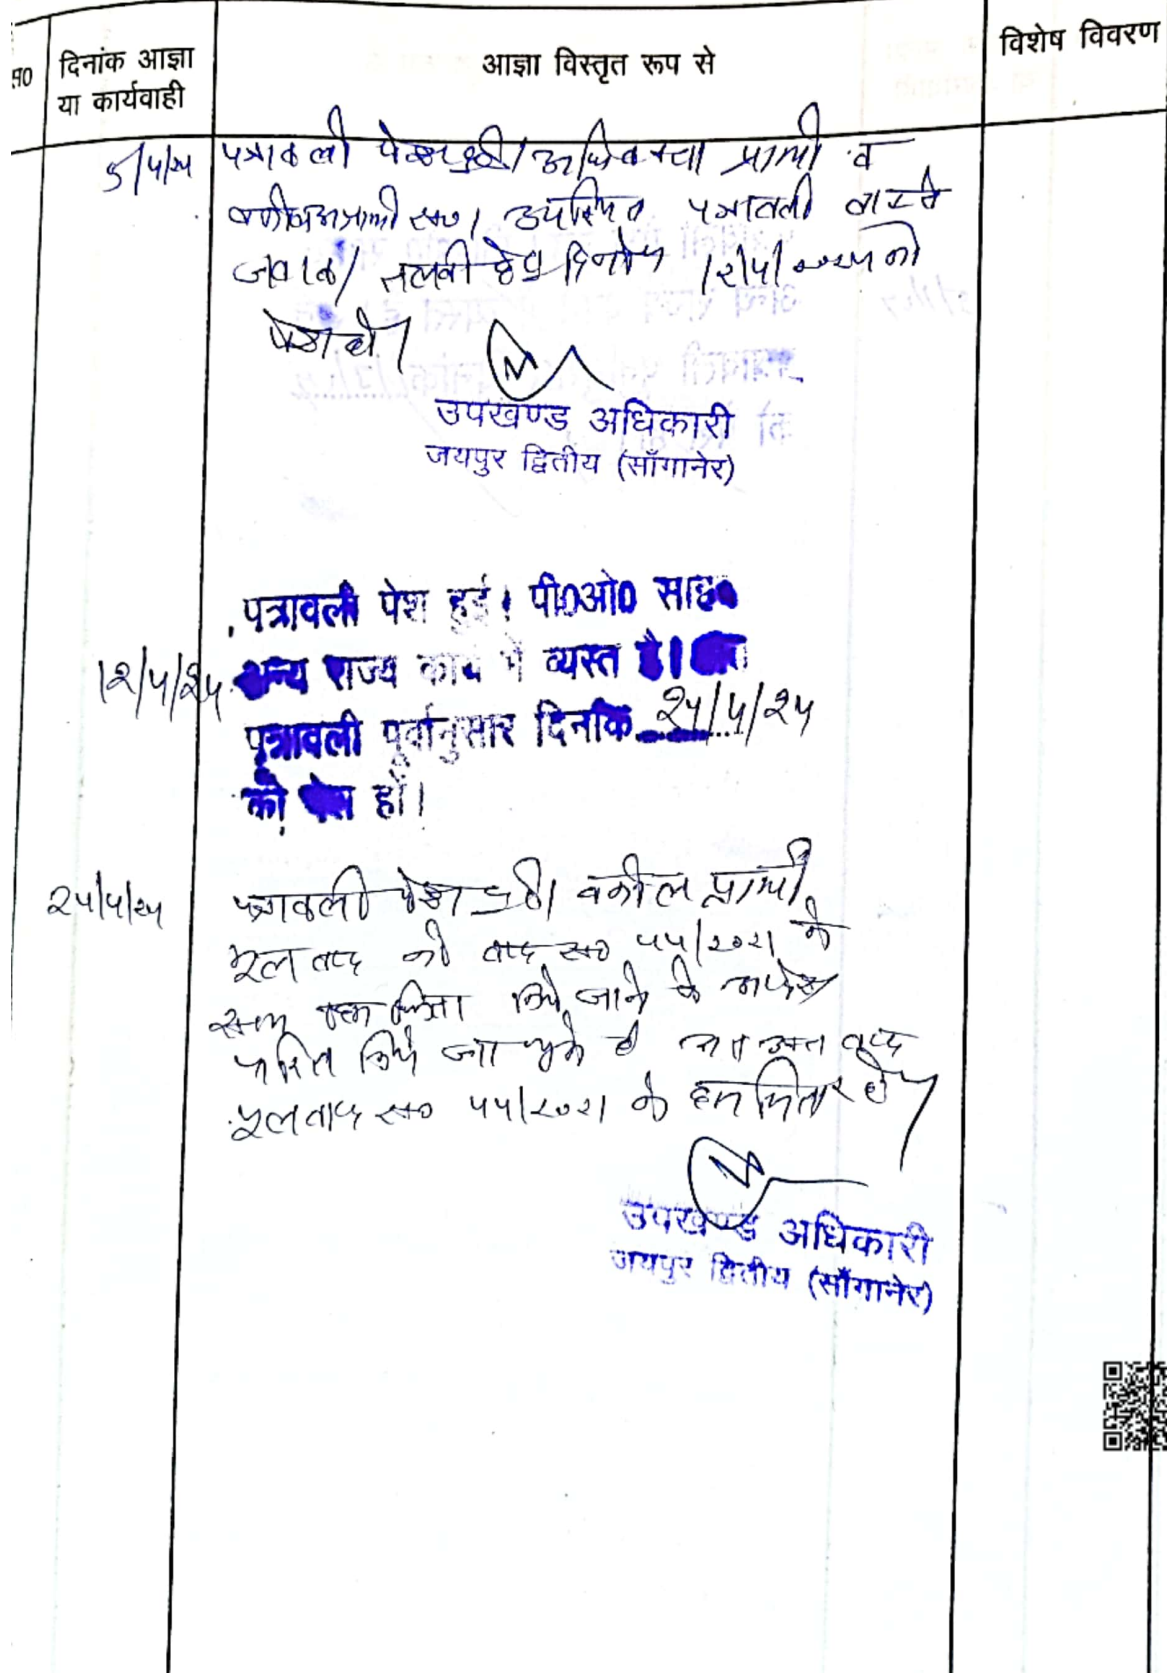 स0
दिनांक आज्ञा
या कार्यवाही
आज्ञा विस्तृत रूप से
विशेष विवरण
5/५/२५ पत्रावली पेश हुई। अधिवक्ता प्रार्थी व
उपस्थित पत्रावली वास्ते
जवाब/ तलवी हेतु दिनांक १२/५/२०२५ को
पेश हो।
उपखण्ड अधिकारी
जयपुर द्वितीय (साँगानेर)
पत्रावली पेश हुई। पी0ओ0 साहब
१२/५/२५ अन्य राज्य कार्य में व्यस्त है।
पत्रावली पूर्वानुसार दिनांक २५/५/२५
को पेश हों।
२५/५/२५ पत्रावली पेश हुई। वकील प्रार्थी
मूल वाद को वाद स०० ५५/२०२१ के
किये जाने के आदेश
पारित किये जा चुके है वाद
मूल वाद स०० ५५/२०२१ के
उपखण्ड अधिकारी
जयपुर द्वितीय (साँगानेर)